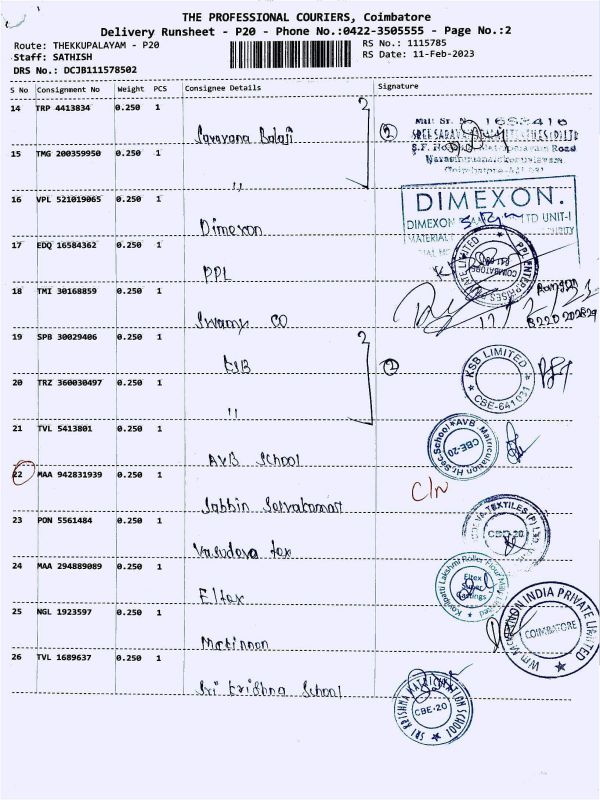 THE PROFESSIONAL COURIERS, Coimbatore
Delivery Runsheet - P20 - Phone No.:0422-3505555 - Page No.:2
Route: THEKKUPALAYAM - P20
RS No.: 1115785
Staff: SATHISH
RS Date: 11-Feb-2023
DRS No.: DCJB111578502
S No Consignment No Weight PCS Consignee Details Signature
14 TRP 4413834 0.250 1
Saravana Balaji
2
15 TMG 200359950 0.250 1
"
16 VPL 521019065 0.250 1
Dimexon
DIMEXON.
DIMEXON LTD UNIT-I
17 EDQ 16584362 0.250 1
PPL
PPL ENTERPRISES PRIVATE LIMITED
COIMBATORE
641 031
18 TMI 30168859 0.250 1
Swamy CO
19 SPB 30029406 0.250 1
KSB
2
KSB LIMITED
CBE-641 031
20 TRZ 360030497 0.250 1
"
21 TVL 5413801 0.250 1
AVB School
AVB Matriculation Hr.Sec.School
CBE-20
22 MAA 942831939 0.250 1
C/N
23 PON 5561484 0.250 1
Vasudeva tex
VASUDEVA TEXTILES (P) LTD
CBE-20
24 MAA 294889089 0.250 1
Eltex
Eltex
Super
Castings
25 NGL 1923597 0.250 1
INDIA PRIVATE LIMITED
COIMBATORE
26 TVL 1689637 0.250 1
Sri Krishna School
SRI KRISHNA MATRICULATION SCHOOL
CBE-20